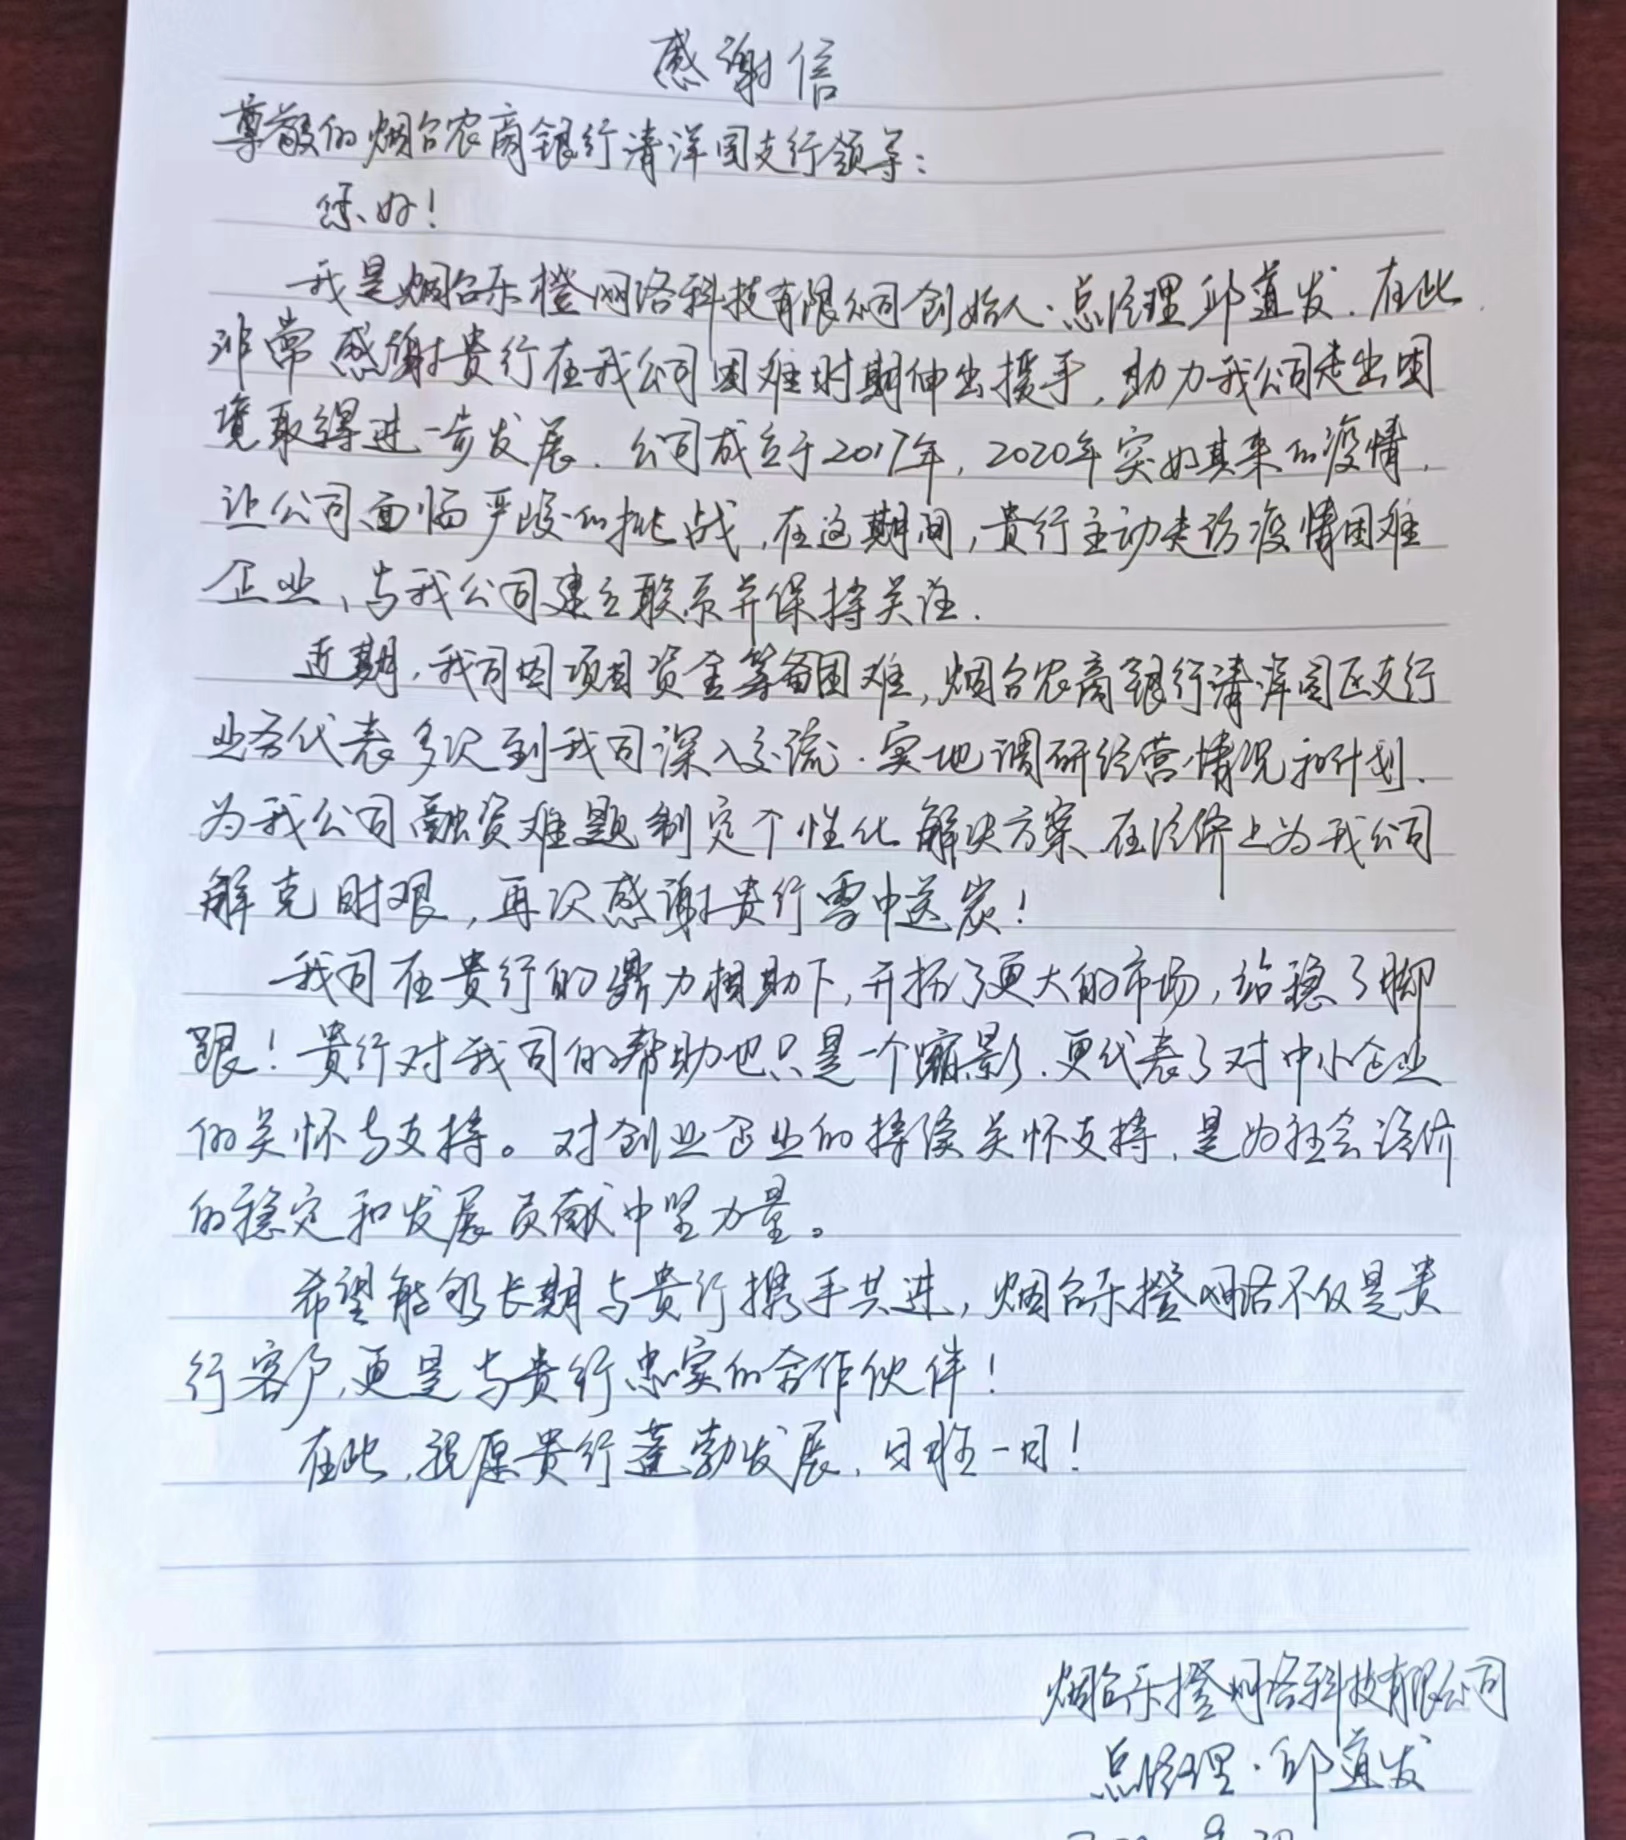 感谢信
尊敬的烟台农商银行清洋园支行领导：
您好！
我是烟台乐橙网络科技有限公司创始人.总经理邱道发.在此
非常感谢贵行在我公司困难时期伸出援手，助力我公司走出困
境取得进一步发展.公司成立于2017年，2020年突如其来的疫情，
让公司面临严峻的挑战，在这期间，贵行主动走访疫情困难
企业，与我公司建立联系并保持关注.
近期，我司因项目资金筹备困难，烟台农商银行清洋园区支行
业务代表多次到我司深入交流.实地调研经营情况和计划.
为我公司融资难题制定个性化解决方案.在经济上为我公司
解克时艰，再次感谢贵行雪中送炭！
我司在贵行的鼎力相助下，开拓了更大的市场，站稳了脚
跟！贵行对我司的帮助也只是一个缩影.更代表了对中小企业
的关怀与支持。对创业企业的持续关怀支持，是为社会经济
的稳定和发展贡献中坚力量。
希望能够长期与贵行携手共进，烟台乐橙网络不仅是贵
行客户，更是与贵行忠实的合作伙伴！
在此，祝愿贵行蓬勃发展，日胜一日！
烟台乐橙网络科技有限公司
总经理.邱道发